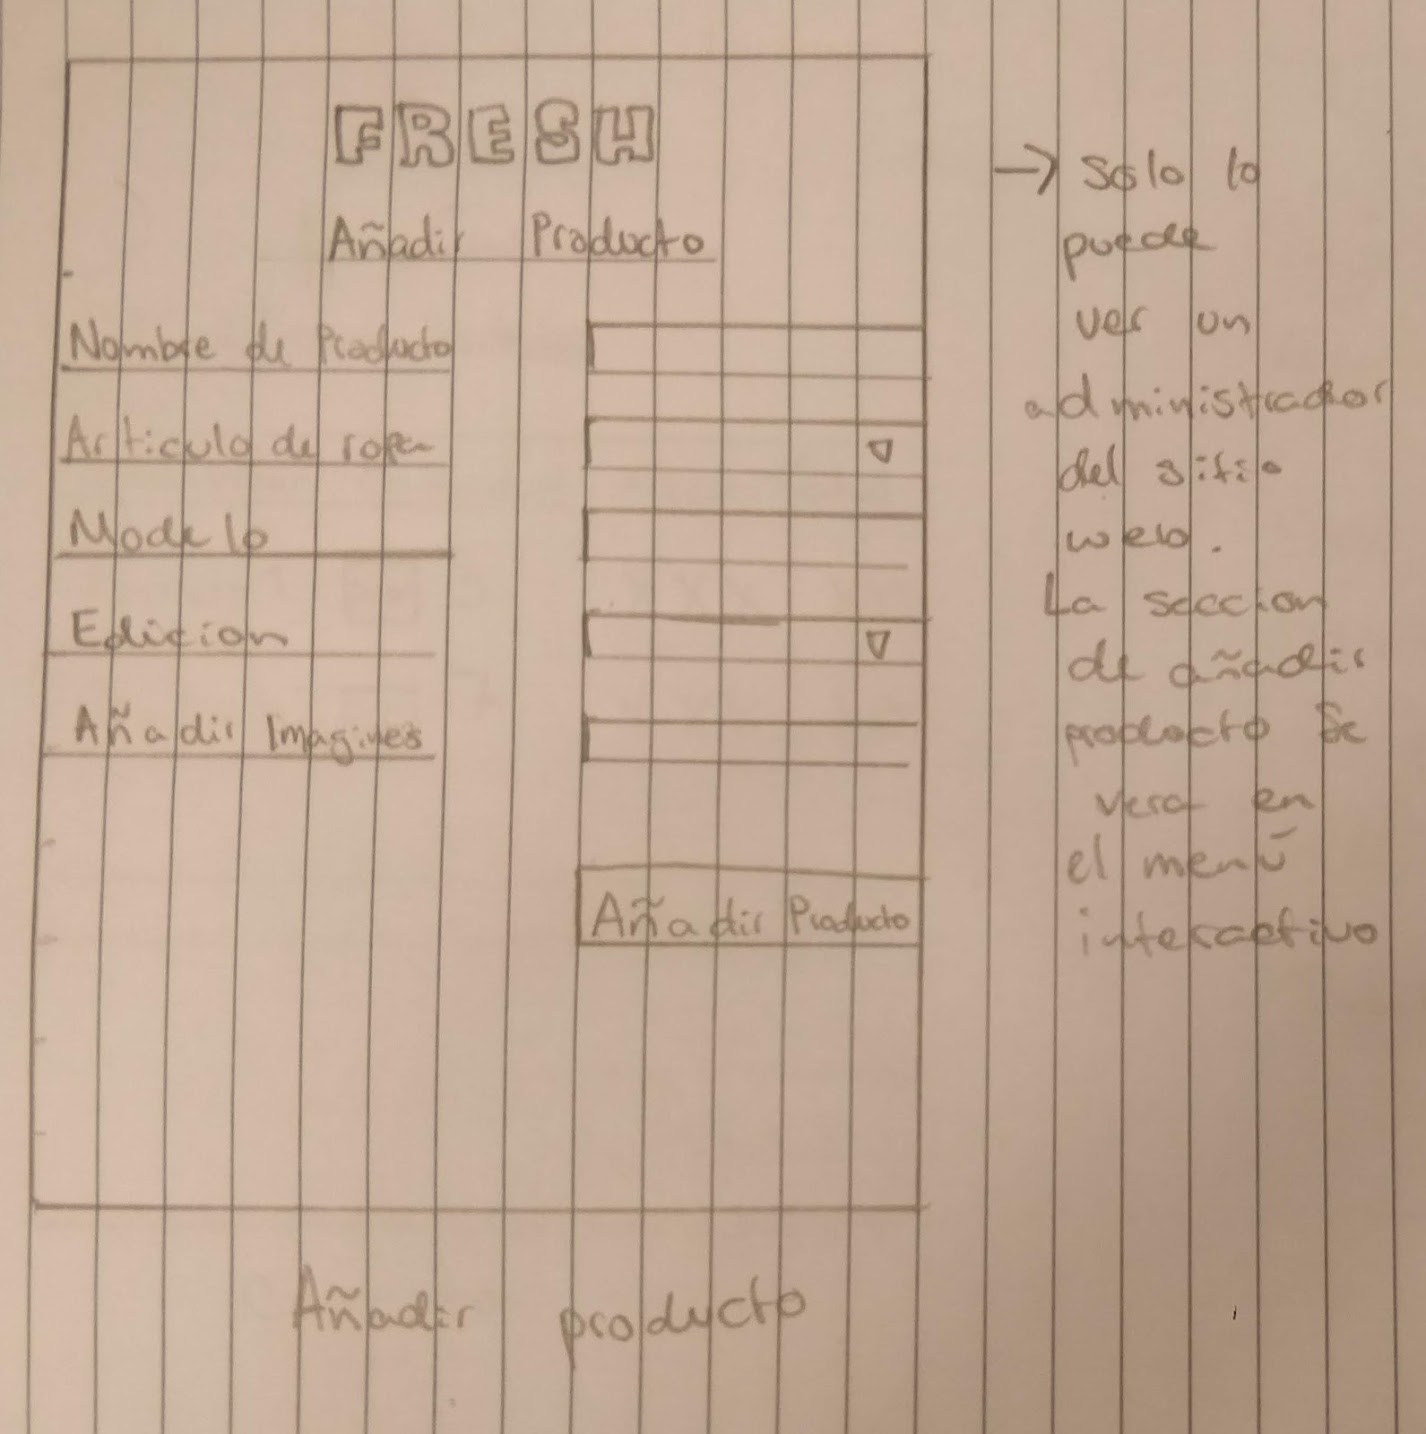 FRESH
Añadir Producto
Nombre de Producto
Articulo de ropa
Modelo
Edicion
Añadir Imagines
Añadir Producto
Añadir producto
→ solo lo
puede
ver un
administrador
del sitio
web.
La seccion
de añadir
producto se
vera en
el menú
interactivo